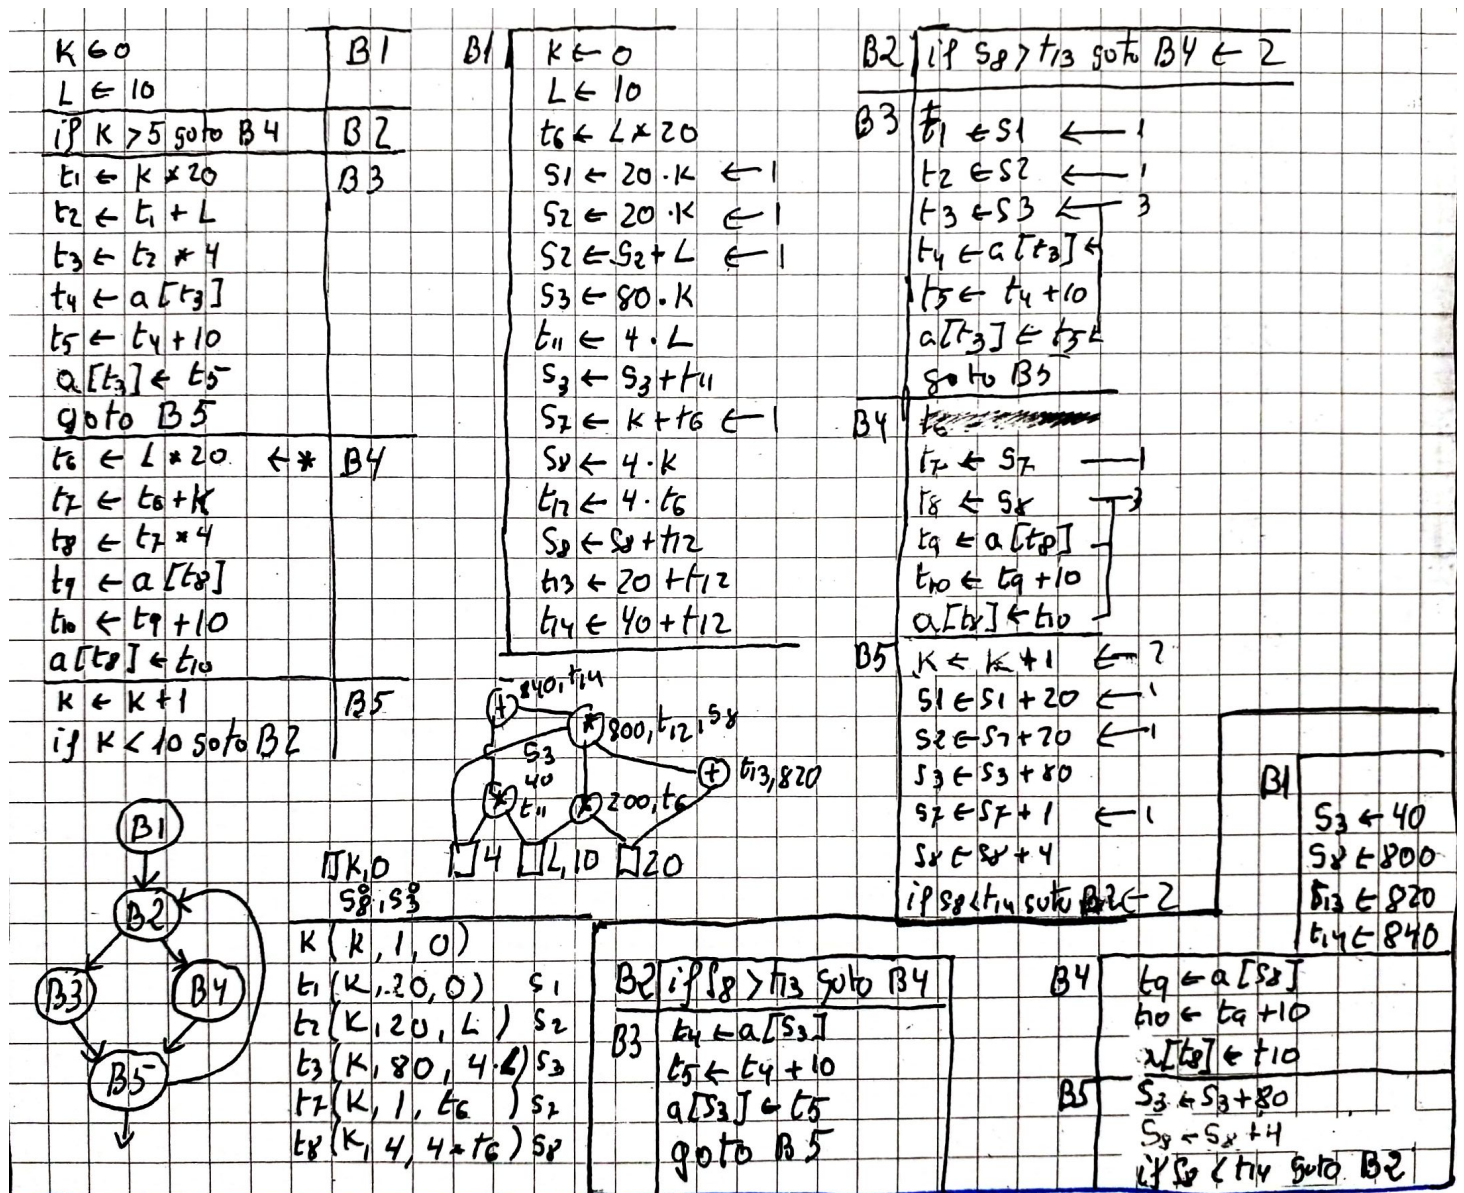 K ← 0 B1
L ← 10
if K > 5 goto B4 B2
t1 ← K * 20 B3
t2 ← t1 + L
t3 ← t2 * 4
t4 ← a[t3]
t5 ← t4 + 10
a[t3] ← t5
goto B5
t6 ← L * 20 ← * B4
t7 ← t6 + K
t8 ← t7 * 4
t9 ← a[t8]
t10 ← t9 + 10
a[t8] ← t10
K ← K + 1 B5
if K < 10 goto B2
B1
B2
B3 B4
B5
B1 K ← 0
L ← 10
t6 ← L * 20
S1 ← 20 · K ← 1
S2 ← 20 · K ← 1
S2 ← S2 + L ← 1
S3 ← 80 · K
t11 ← 4 · L
S3 ← S3 + t11
S7 ← K + t6 ← 1
S8 ← 4 · K
t12 ← 4 · t6
S8 ← S8 + t12
t13 ← 20 + t12
t14 ← 40 + t12
+ 840, t14
* 800, t12, S8
S3
40
t11
* * 200, t6
+ t13, 820
K, 0 4 L, 10 20
S8°, S3°
K (K, 1, 0)
t1 (K, 20, 0) S1
t2 (K, 20, L) S2
t3 (K, 80, 4·L) S3
t7 (K, 1, t6) S7
t8 (K, 4, 4*t6) S8
B2 if S8 > t13 goto B4 ← 2
B3 t1 ← S1 ← 1
t2 ← S2 ← 1
t3 ← S3 ← 3
t4 ← a[t3] ←
t5 ← t4 + 10
a[t3] ← t5 ←
goto B5
B4
t7 ← S7 1
t8 ← S8 3
t9 ← a[t8]
t10 ← t9 + 10
a[t8] ← t10
B5 K ← K + 1 ← 2
S1 ← S1 + 20 ← 1
S2 ← S2 + 20 ← 1
S3 ← S3 + 80
S7 ← S7 + 1 ← 1
S8 ← S8 + 4
if S8 < t14 goto B2 ← 2
B1
S3 ← 40
S8 ← 800
t13 ← 820
t14 ← 840
B2 if S8 > t13 goto B4
B3 t4 ← a[S3]
t5 ← t4 + 10
a[S3] ← t5
goto B5
B4 t9 ← a[S8]
t10 ← t9 + 10
a[t8] ← t10
B5 S3 ← S3 + 80
S8 ← S8 + 4
if S8 < t14 goto B2